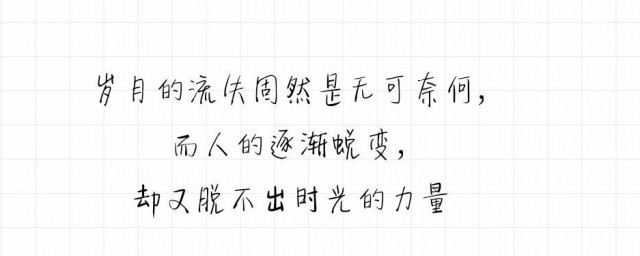 岁月的流失固然是无可奈何,
而人的逐渐蜕变,
却又脱不出时光的力量